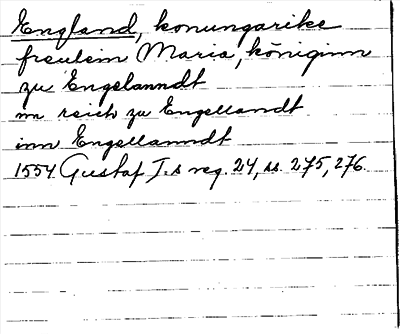 England, konungarike
freulein Maria, königinn
zu Engelanndt
nn reich zu Engellandt
inn Engellanndt
1554 Gustaf I.s reg. 24, ss. 275, 276.